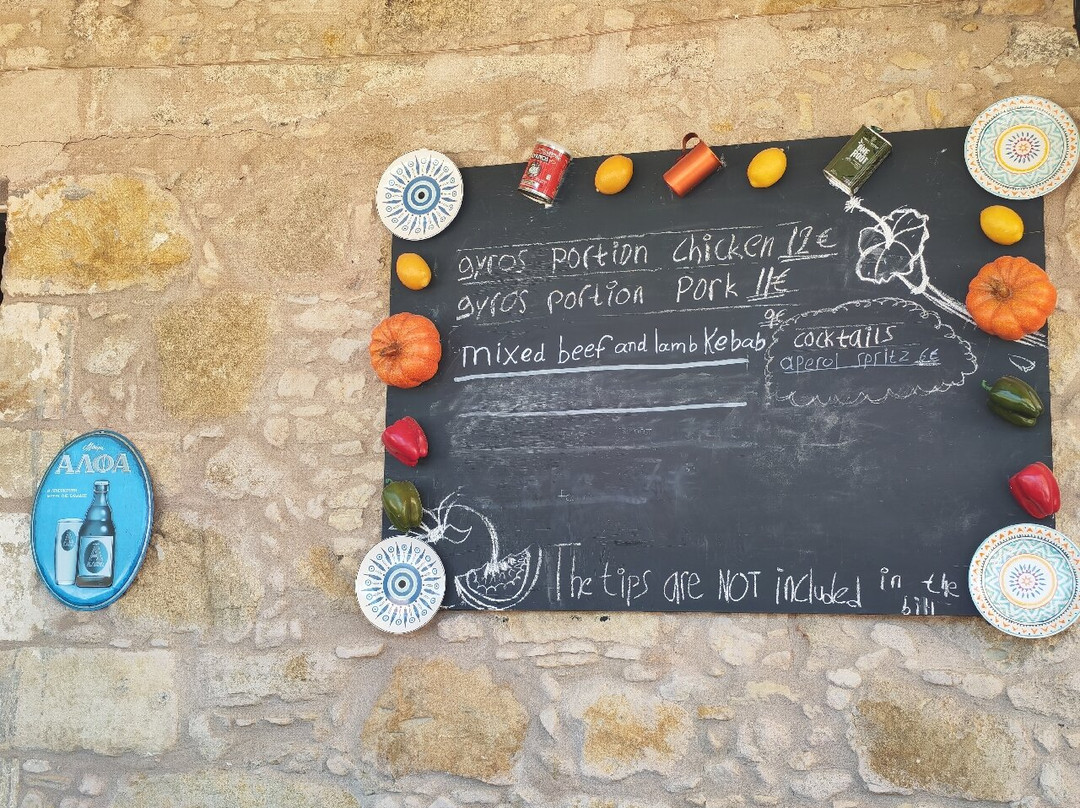 gyros portion chicken 12€
gyros portion Pork 11€
mixed beef and lamb Kebab 9€
cocktails
aperol spritz 6€
The tips are NOT included in the
bill
ΑΛΦΑ